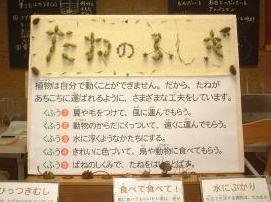 たねのふしぎ
植物は自分で動くことができません。だから、たねが
あちこちに運ばれるように、さまざまな工夫をしています。
くふう1 翼や毛をつけて、風に運んでもらう。
くふう2 動物のからだにくっついて、遠くに運んでもらう。
くふう3 水に浮くようなかたちにする。
くふう4 きれいに色づいて、鳥や動物に食べてもらう。
くふう5 ばねのしくみで、たねをはじきとばす。
ひっつきむし
食べて！食べて！
水にぷかり